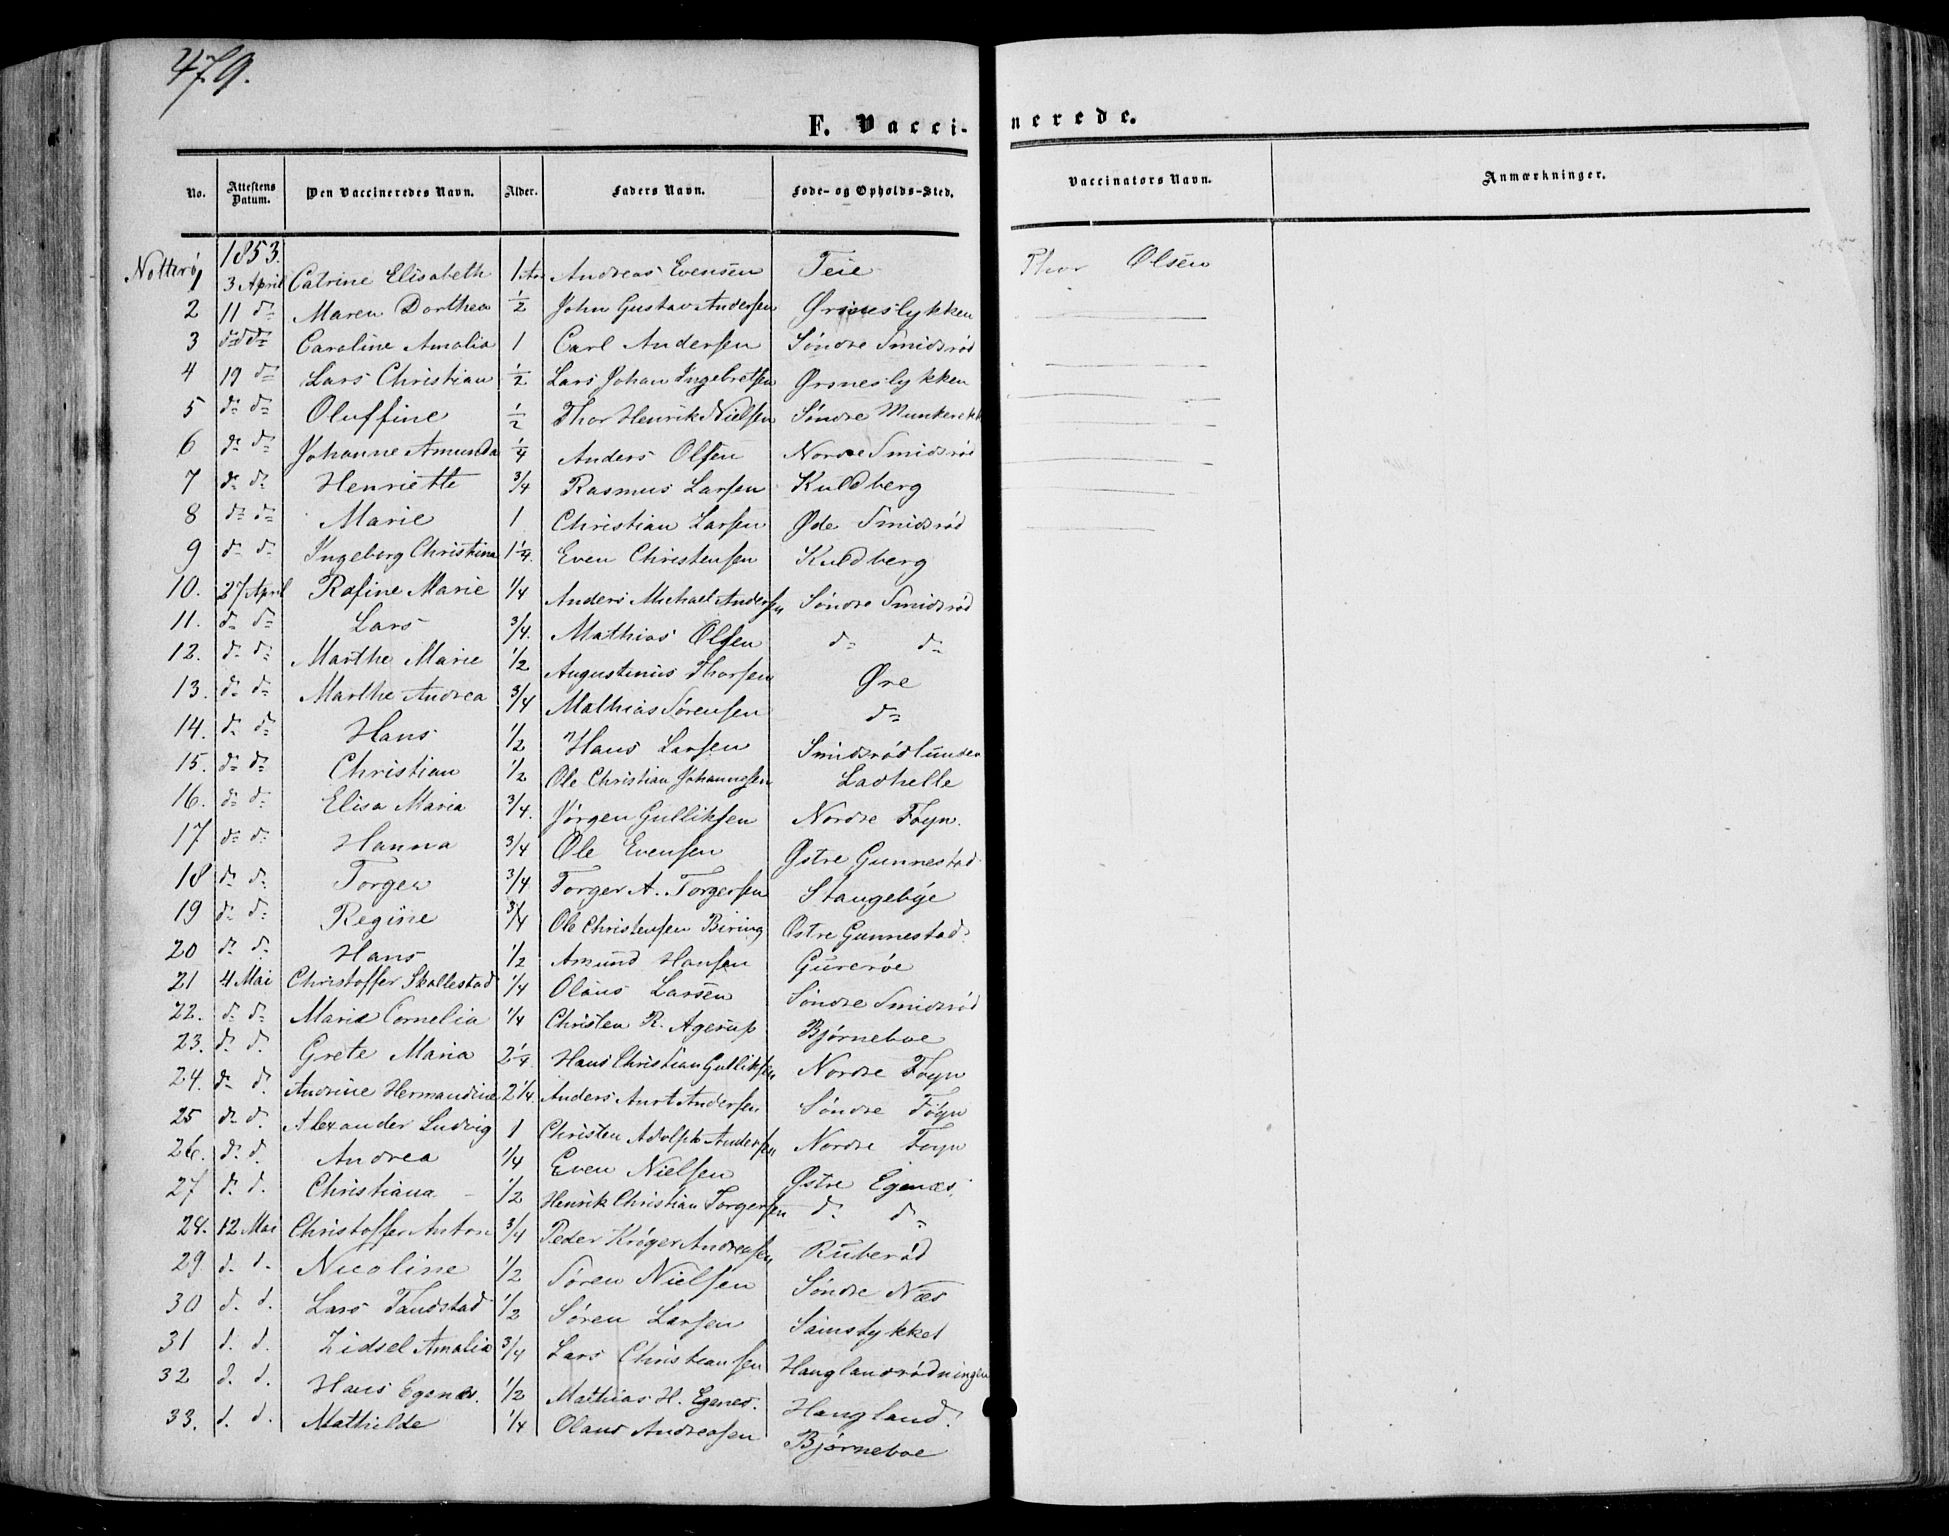 479.
F. Vaccinerede.
No. Attestens Datum. Den Vaccineredes Navn. Alder. Faders Navn. Føde- og Opholds-Sted. Vaccinators Navn. Anmærkninger.
Nøtterø 1853.
1 3 April Catrine Elisabeth 1 Andreas Evensen Teie Thor Olsen
2 11 do Maren Dorthea 1/2 John Gustav Andersen Ørsneslykken
3 do do Caroline Amalia 1 Carl Andersen Søndre Smidsrød
4 19 do Lars Christian 1/2 Lars Johan Ingebretsen Ørsneslykken
5 do do Oluffine 1/2 Thor Henrik Nielsen Søndre
6 do do Johanne Amunda 1/4 Anders Olsen Nordre Smidsrød
7 do do Henriette 3/4 Rasmus Larsen Kuldberg
8 do do Marie 1 Christian Larsen Øde Smidsrød
9 do do Ingeborg Christina 1 1/4 Even Christensen Kuldberg
10. 27 April Rafine Marie 1/4 Anders Michael Andersen Søndre Smidsrød
11. do do Lars 3/4. Mathias Olsen do do
12. do do Marthe Marie 1/2 Augustinus Thorsen Øre
13. do do Marthe Andrea 3/4 Mathias Sørensen do
14. do do Hans 1/2 Hans Larsen Smidsrødlunden
15. do do Christian 1/2 Ole Christian Johannessen Ladhelle
16. do do Elisa Maria 3/4. Jørgen Gulliksen Nordre Føyn.
17 do do Hanna 3/4 Ole Evensen Østre Gunnestad
18 do do Torger 3/4 Torger A. Torgersen Stangebye
19 do do Regine 3/4 Ole Christensen Biring Østre Gunnestad
20 do do Hans 1/2 Amund Hansen
21 4 Mai Christoffer Skallestad 1/4 Olaus Larsen Søndre Smidsrød
22. do do Marie Cornelia 1/4 Christen R. Agerup Bjørneboe
23. do do Grete Maria 2 1/4 Hans Christian Gulliksen Nordre Føyn
24. do do Andrine Hermandine 2 1/4. Anders Andersen Søndre Føyn
25 do do Alexander Ludvig 1 Christen Adolph Andersen Nordre Føyn
26. do d. Andrea 1/4 Even Nielsen Østre Egenæs
27 do d. Christiana 1/2 Henrik Christian Torgersen do do
28. 12 Mai Christoffer Anton 3/4 Peder Krøger Andreasen Ruberød
29. d. d. Nicoline 1/2 Søren Nielsen Søndre Næs
30 d. d. Lars 1/2 Søren Larsen
31 d. d. Zidsel Amalia 3/4 Lars Christiansen Hauglandsrødningen
32 d. d. Hans Egenæs. 1/2 Mathias H. Egenes. Haugland.
33. d. d. Mathilde 1/4 Olaus Andreasen Bjørneboe